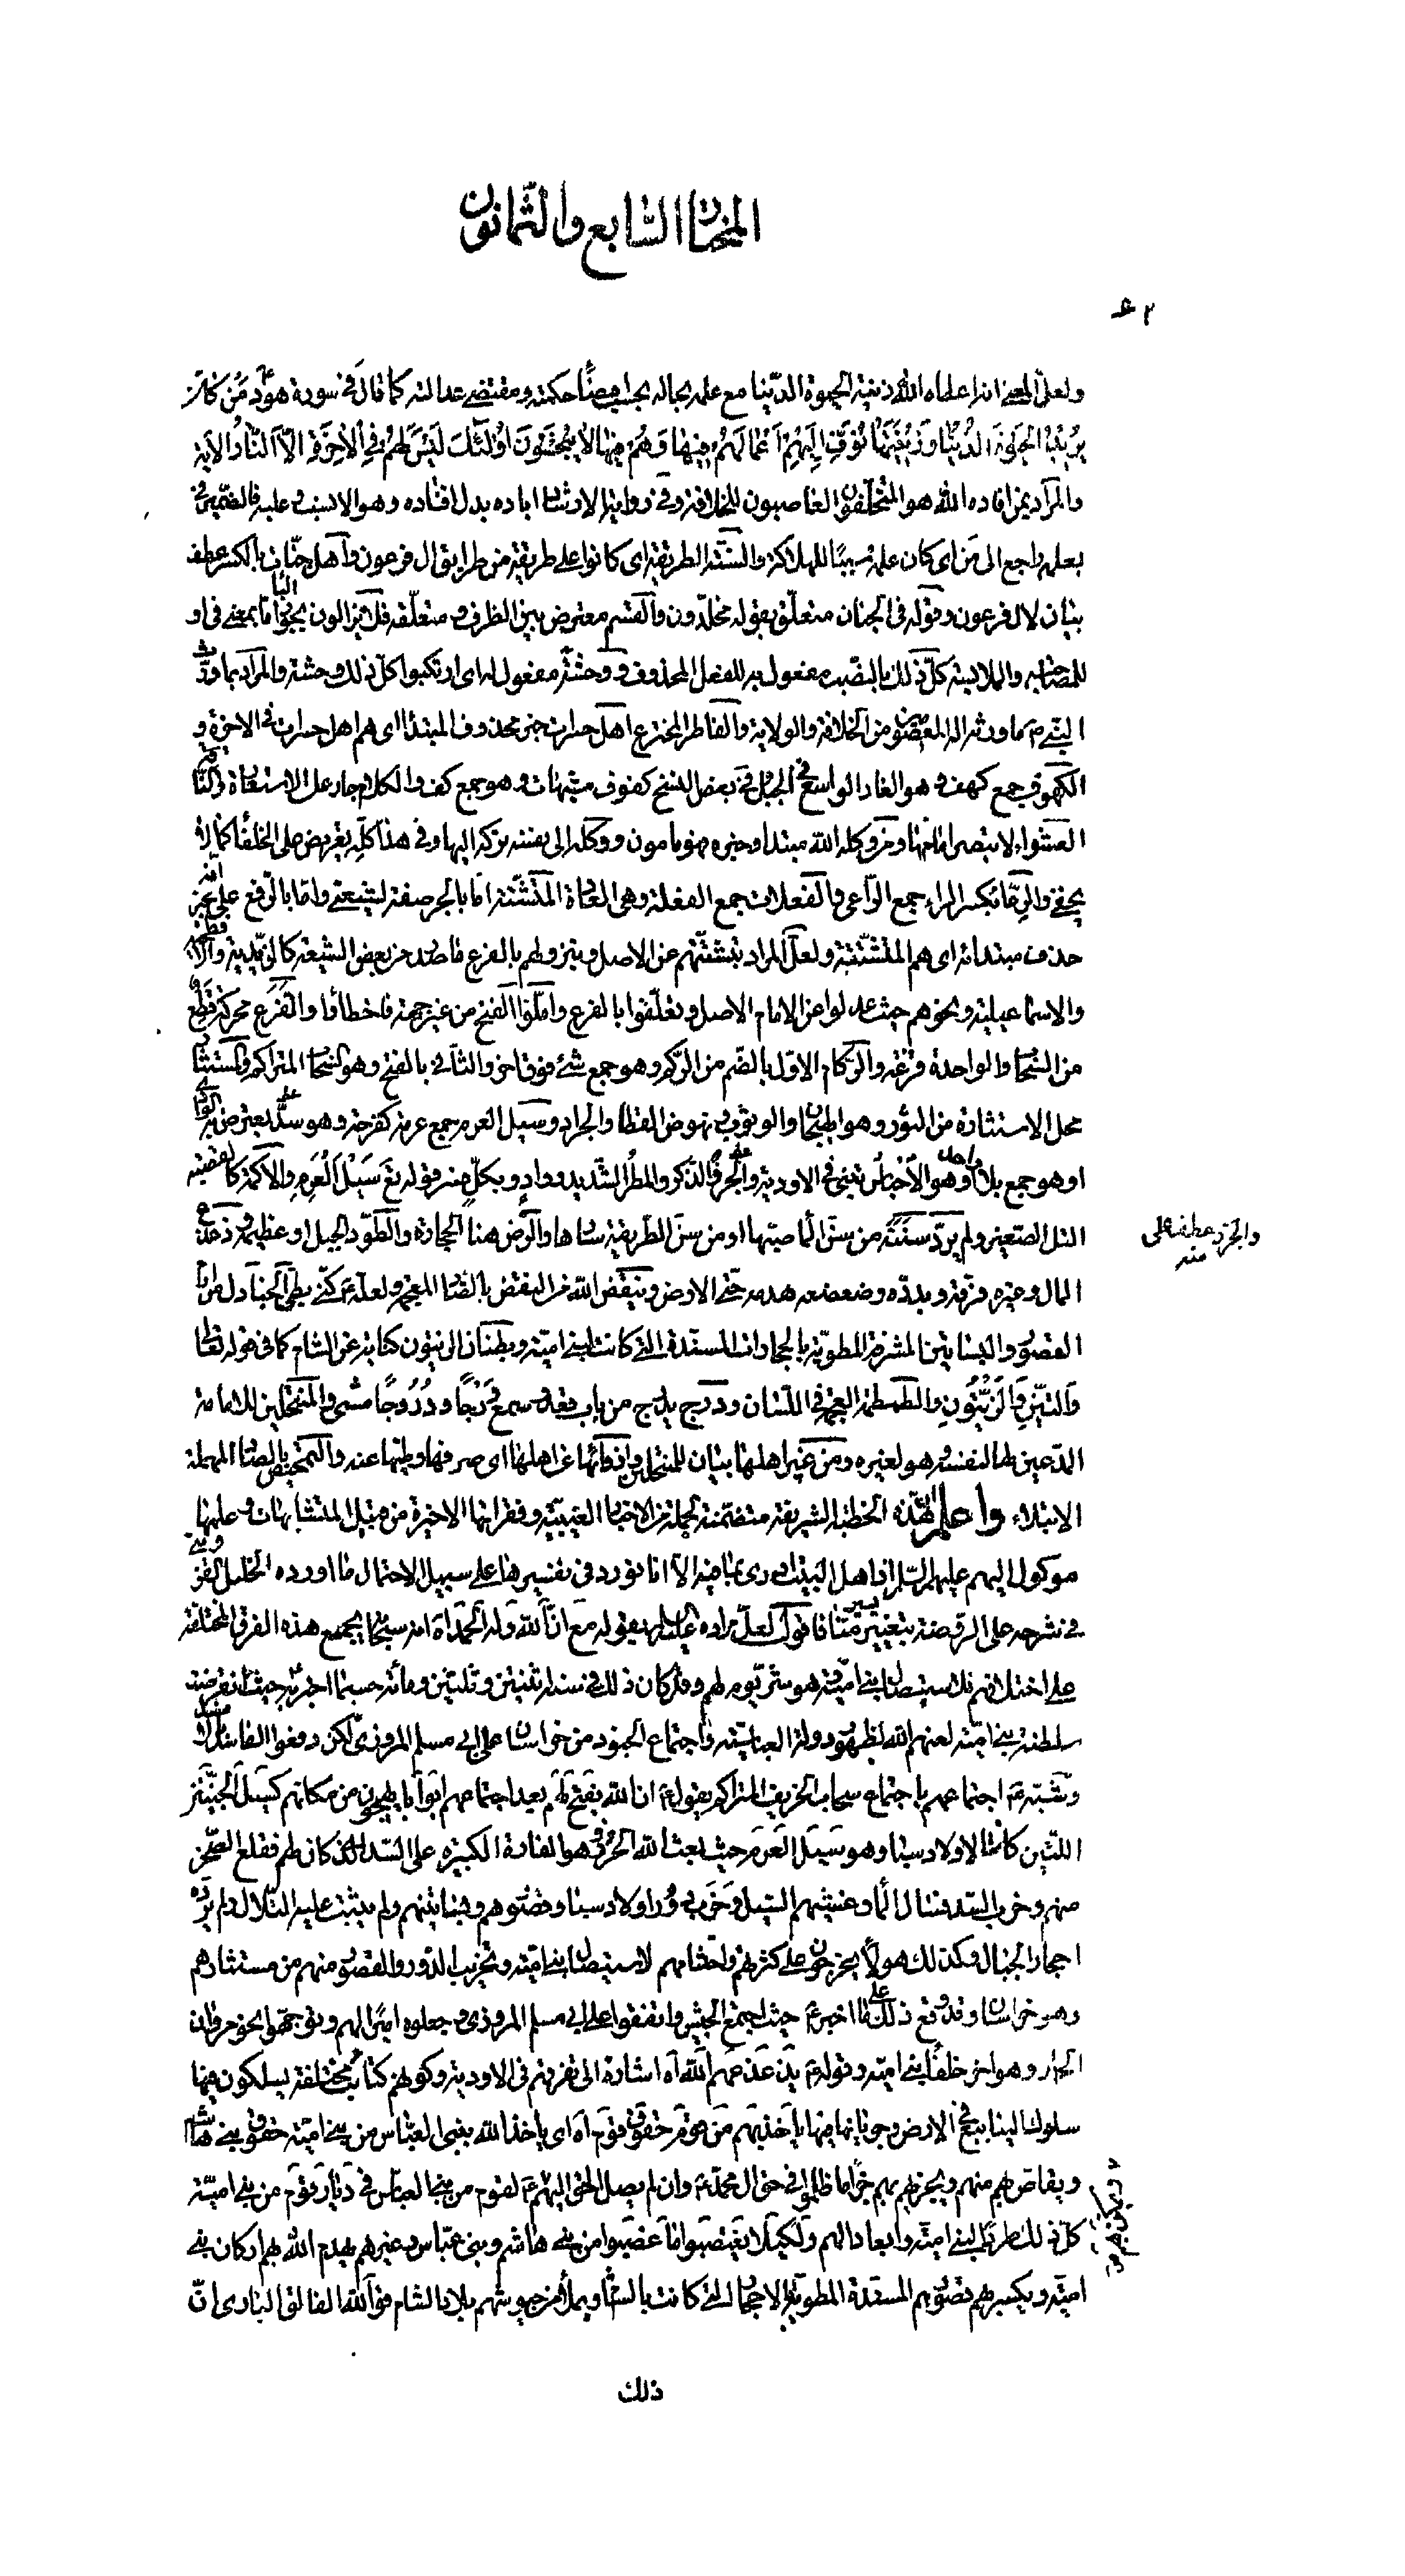 المختار السابع والثمانون
ولعل المعنى انه اعطاه الله زينة الحيوة الدنيا مع علمه بحاله بحسب مصالح حكمته ومقتضى عدالته كما قال في سورة هود من كان
يريد الحيوة الدنيا وزينتها نوف اليهم اعمالهم فيها وهم فيها لا يبخسون اولئك ليس لهم في الآخرة الا النار الآية
والمراد بمن افاده الله هو المتخلفون الغاصبون للخلافة وفي رواية الارشاد اباده بدل افاده وهو الانسب وعليه فالضمير في
بعلمه راجع الى من اي كان علمه سببا للهلاكة والسنة الطريقة اي كانوا على طريقة من طرايق ال فرعون واهل جنات بالكسر عطف
بيان لال فرعون وقوله في الجنان متعلق بقوله مخلدون والقسم معترض بين الظرف ومتعلقه الباء اما بمعنى في او
للمصاحبة والملابسة كل ذلك بالنصب مفعول به للفعل المحذوف ووحشة مفعول له اي ارتكبوا كل ذلك وحشة والمراد بما ورث
النبي ما ورثه اله المعصومون من الخلافة والولاية والفاطر المخترع اهل حسرات خبر محذوف المبتدا اي هم اهل حسرات في الاخرة و
الكهوف جمع كهف وهو الغار الواسع في الجبل وفي بعض النسخ كفوف شبهات وهو جمع كف والكلام جار على الاستعارة
العشواء لا تبصر امامها ومن وكله الله مبتدا وخبره فهو مامون ووكله الى نفسه تركه اليها وفي هذا كله تعريض على الخلفاء كما لا
يخفى والرعاء بكسر الراء جمع الراعي والفعلات جمع الفعلة وهي العادة المتشتتة اما بالجر صفة لشيعتي واما بالرفع على انه خبر
حذف مبتدائه اي هم المتشتتة ولعل المراد بتشتتهم عن الاصل ونزولهم بالفرع ما صدر من بعض الشيعة كالزيدية
والاسماعيلية ونحوهم حيث عدلوا عن الامام الاصل وتعلقوا بالفرع واملوا الفتح من غير جهته فاخطأوا والقزع محركة قطع
من السحاب والواحدة قزعة والركام الاول بالضم من الركم وهو جمع شئ فوق اخر والثاني بالفتح وهو السحاب المتراكم والمستثار
محل الاستثارة من الثور وهو الهيجان والوثوب ونهوض القطا والجراد وسيل العرم جمع عرمة كفرحة وهو سد يعترض به الوادي
او هو جمع بلا واحد وهو الاحباس تبنى في الاودية والجرذ الذكر والمطر الشديد وواد وبكل فسر قوله تع سيل العرم والاكمة كالقصبة
التل الصغير ولم يرد سننه من سنن الماء صبتها او من سنن الطريقة سارها والرض هنا الحجارة والطود الجبل او عظيمه وذعذع
المال وغيره فرقه وبدده وضعضعه هدمه حتى الارض وينقض الله من النقض بالضاد المعجمة ولعله ع كنى بطى الجنادل من ارم عن
القصور والبساتين المشرفة المطوية بالحجارات المسندة التي كانت لبني امية وبطنان الزيتون كناية عن الشام كما في قوله تعالى
والتين والزيتون والطمطمة العجمة في اللسان ودرج يدرج من باب قعد وسمع درجا ودروجا مشى والمنتحلين للامامة
المدعين لها لنفسه وهو لغيره ومن غير اهلها بيان للمنتحلين وزوائها عن اهلها اي صرفها وطيها عنه والتمحيص بالصاد المهملة
الابتلاء واعلم ان هذه الخطبة الشريفة متضمنة لجملة من الاخبار الغيبية وفقراتها الاخيرة من قبيل المتشابهات وعلمها
موكول اليهم عليهم السلم اذ اهل البيت ادرى بما فيه الا انا نورد في تفسيرها على سبيل الاحتمال ما اورده الخليل القزويني
في شرحه على الروضة بتغيير يسير منا فاقول لعل مراده عليه السلم بقوله مع ان الله وله الحمد اه انه سبحانه يجمع هذه الفرق المختلفة
على اختلافهم لاستيصال بني امية وهو شر يوم لهم وقد كان ذلك في سنة اثنتين وثلثين ومائة حسبما اخبر به ع حيث انقرضت
سلطنة بني امية لعنهم الله بظهور دولة العباسية واجتماع الجنود من خراسان على ابي مسلم المروزي لكن دفعوا الفاسد بالافسد
وشبه ع اجتماعهم باجتماع سحاب الخريف المتراكم بقوله ع ان الله يفتح لهم بعد اجتماعهم ابوابا يهيجون من مكانهم كسيل الجنتين
اللتين كانتا لاولاد سبا وهو سيل العرم حيث بعث الله الجرذ وهو الفارة الكبيرة على السد الذي كان لهم فقلع الصخر
منهم وخرب السد فسال الماء وغشيهم السيل وخرب دور اولاد سبا وقصورهم وبساتينهم ولم يثبت عليه التلال ولم يرده
احجار الجبال وكذلك هؤلاء يخرجون على كثرتهم واحتشامهم لاستيصال بني امية وتخريب الدور والقصور منهم من مستثارهم
وهو خراسان وقد وقع ذلك على ما اخبر ع حيث اجتمع الجيش واتفقوا على ابي مسلم المروزي وجعلوه اميرا لهم وتوجهوا نحو مروان
الحمار وهو اخر خلفاء بني امية وقوله ع يذعذعهم الله اه اشارة الى تفرقهم في الاودية وكونهم كتائب مختلفة يسلكون فيها
سلوك الينابيع في الارض وجريانها فيها يأخذ بهم من قوم حقوق قوم اه اي يأخذ الله ببني العباس من بني امية حقوق بني هاشم
ويقاص لهم منهم ويجزيهم بهم جزاء ما ظلموا في حق ال محمد ع وان لم يصل الحق اليهم ع لقوم من بني العباس في ديار قوم من بني امية
كل ذلك طردا لبني امية وابعادا لهم ولكيلا يغتصبوا ما غصبوا من بني هاشم وبني عباس وغيرهم يهدم الله بهم اركان بني
امية ويكسر بهم قصورهم المسندة المطوية بالاحجار التي كانت بالشام ويملأ من جيوشهم بلاد الشام فوالله الفالق الباري ان
ذلك
والجرذ عطف على
منه